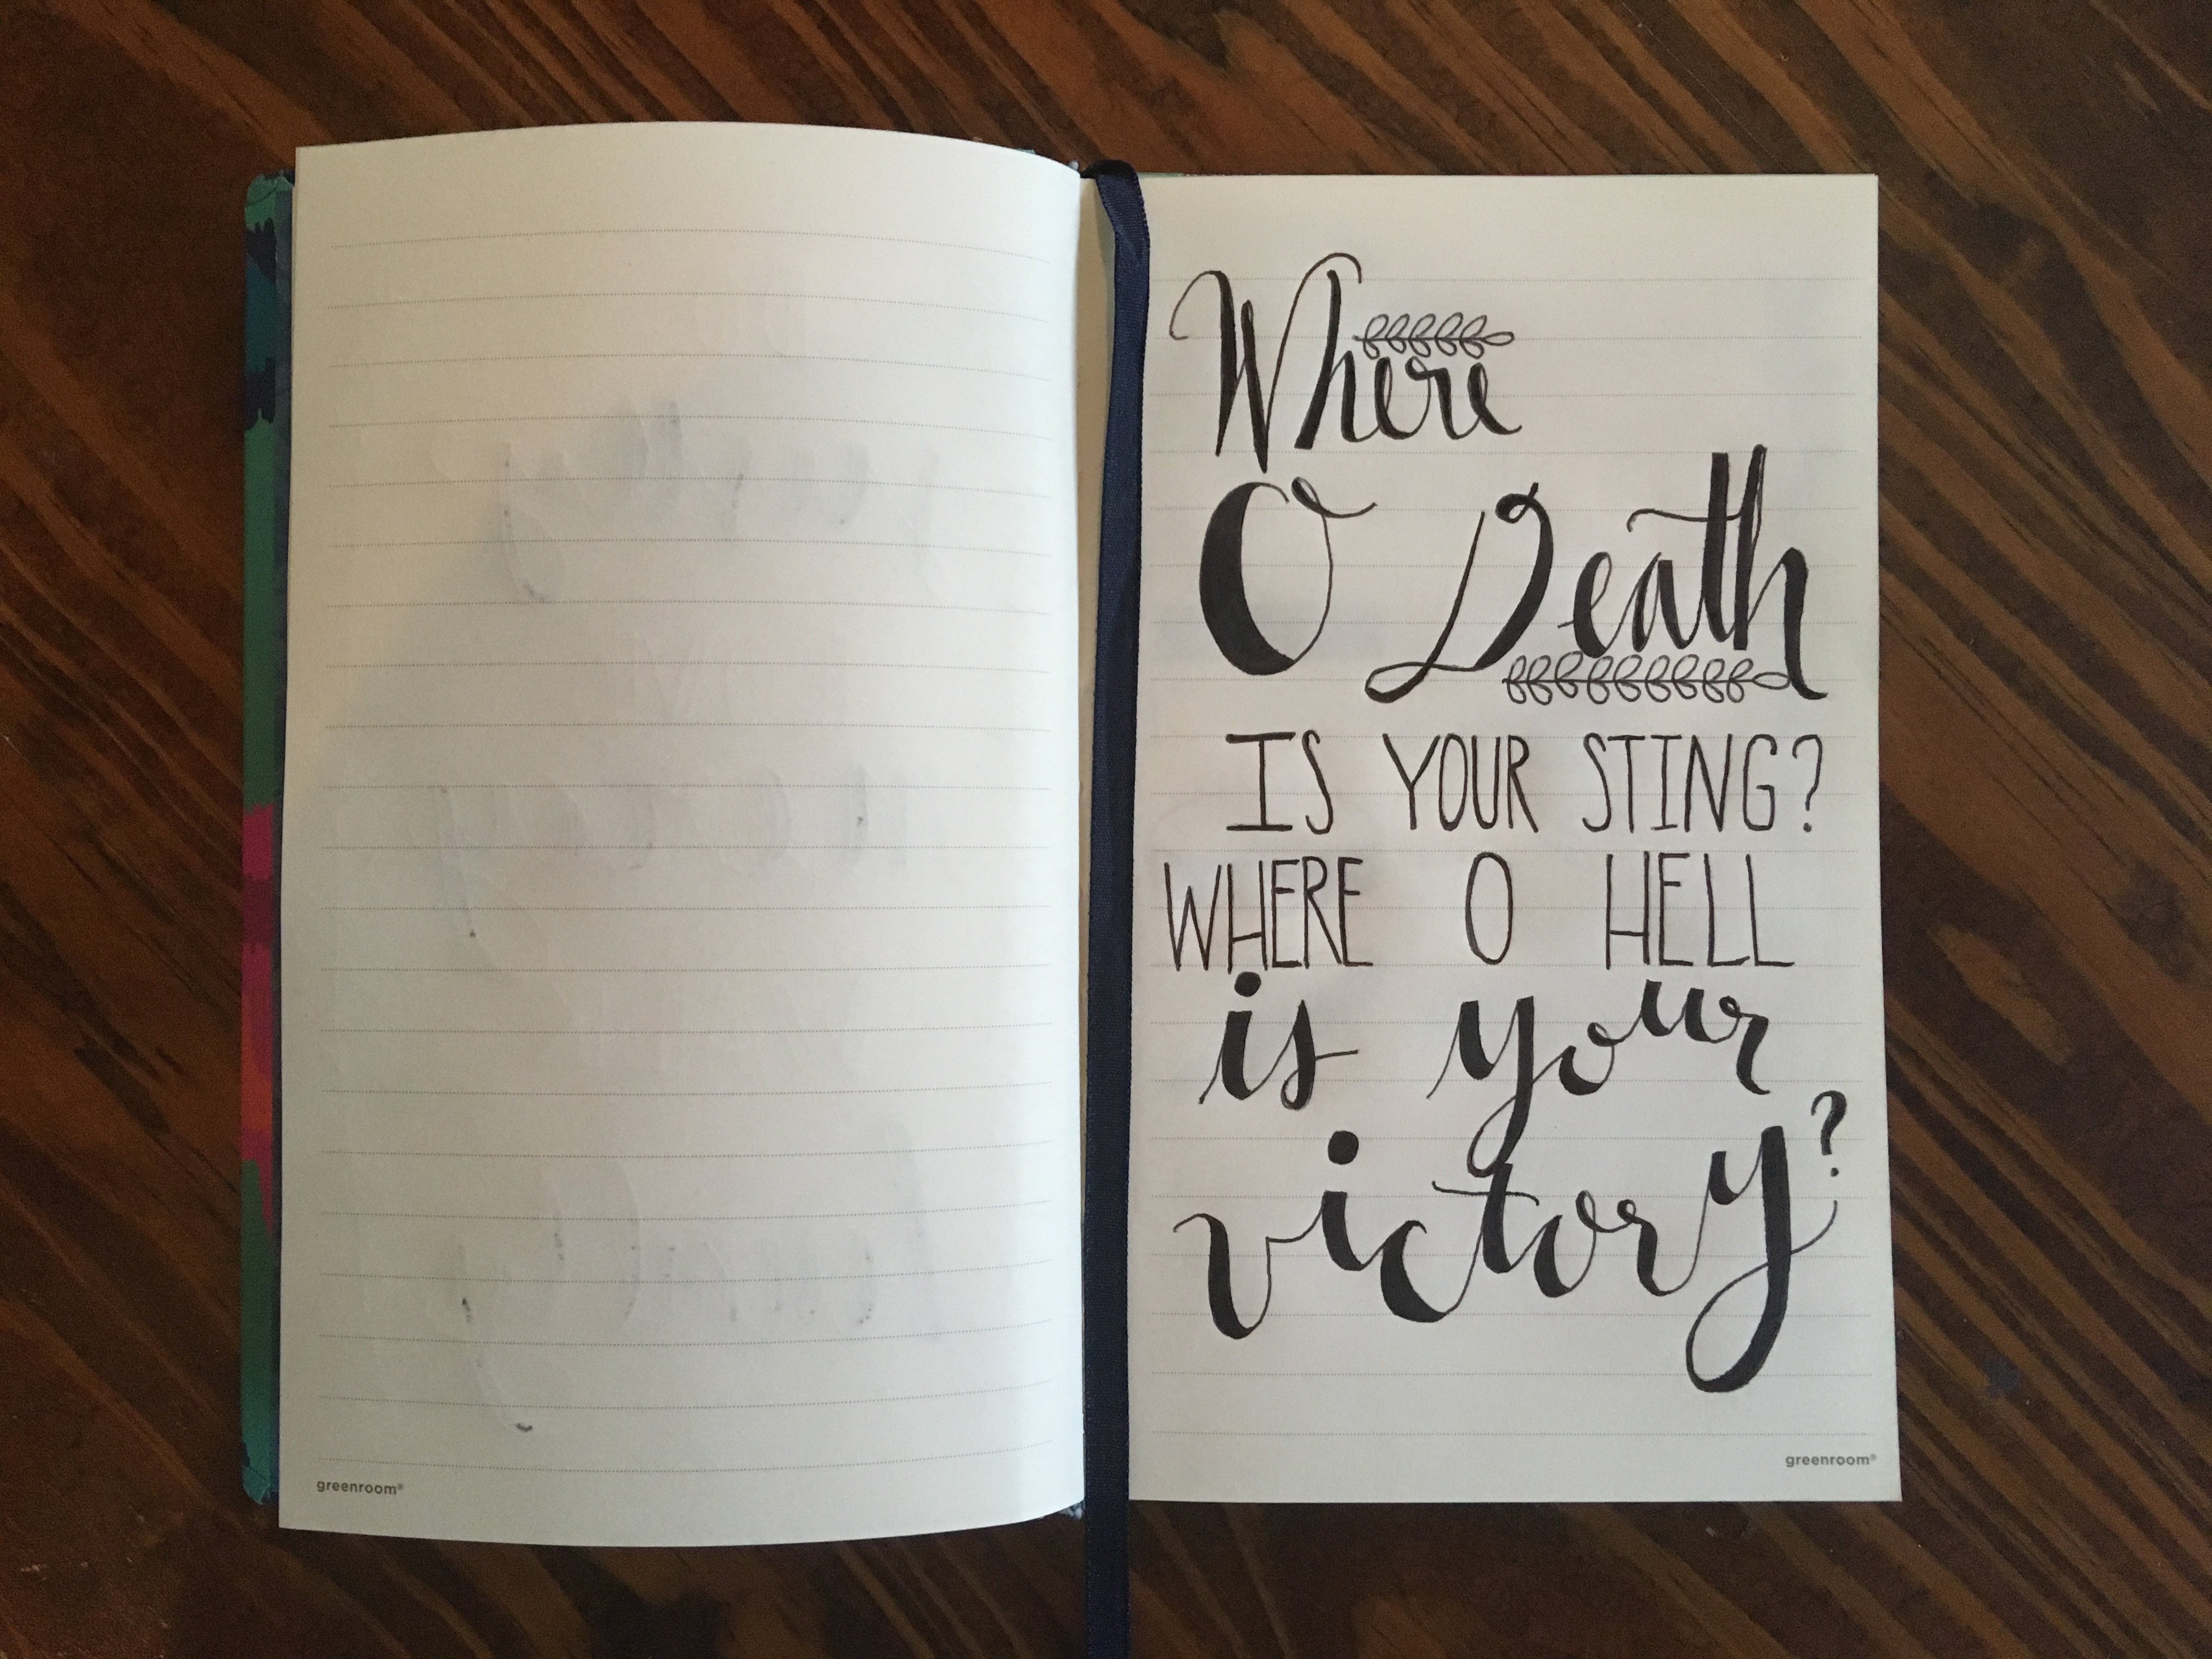 greenroom®
Where
O Death
IS YOUR STING?
WHERE O HELL
is your
victory?
greenroom®